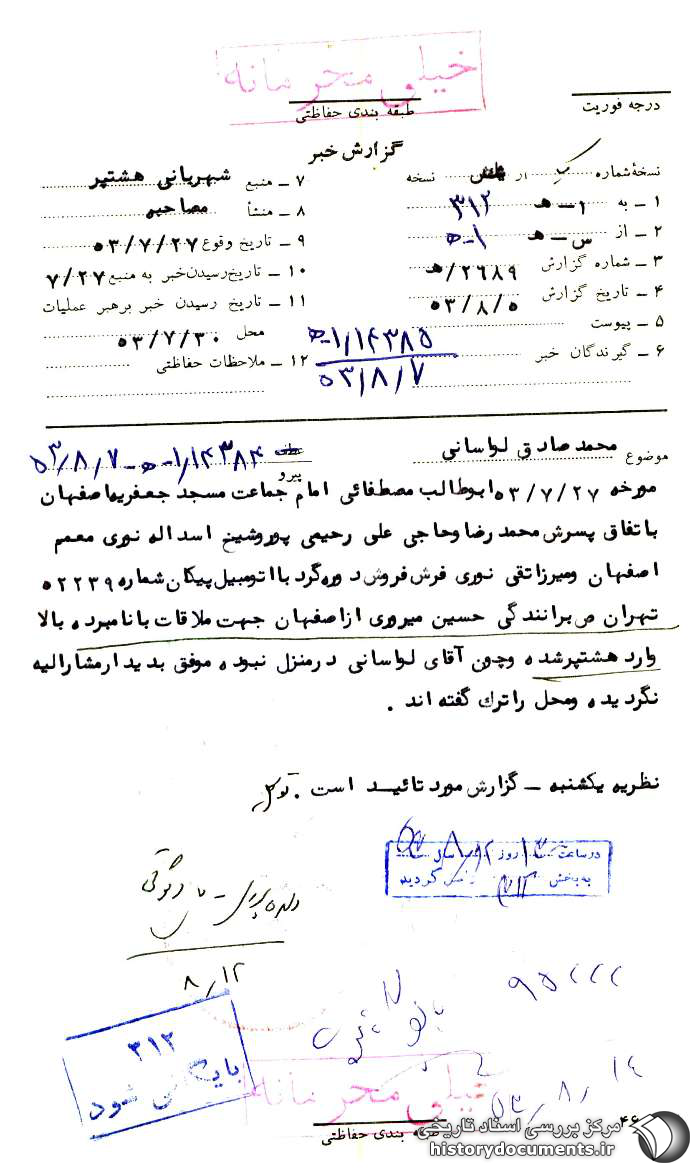 خیلی محرمانه
طبقه بندی حفاظتی
درجه فوریت
گزارش خبر
نسخهٔ شماره از نسخه
۱ ـ به ۳۱۲
۲ ـ از س ـ ه‍ ـ ۱
۳ ـ شماره گزارش ۲۶۸۹/ه‍
۴ ـ تاریخ گزارش ۵/۸/۵۳
۵ ـ پیوست
۶ ـ گیرندگان خبر
۷ ـ منبع شهربانی هشتپر
۸ ـ منشأ مصاحبه
۹ ـ تاریخ وقوع ۵۳/۷/۲۷
۱۰ ـ تاریخ رسیدن خبر به منبع ۷/۲۷
۱۱ ـ تاریخ رسیدن خبر برهبر عملیات
محل ۵۳/۷/۳۰
۱۲ ـ ملاحظات حفاظتی
۱/۱۴۳۸۵ ـ ه‍
۵۳/۸/۷
موضوع محمد صادق لواسانی
پیرو ۱/۱۴۳۸۴ ـ ه‍ ـ ۵۳/۸/۷
مورخه ۵۳/۷/۲۷ ابوطالب مصطفائی امام جماعت مسجد جعفریه اصفهان
باتفاق پسرش محمد رضا وحاجی علی رحیمی پور وشیخ اسداله نوری معمم
اصفهان ومیرزاتقی نوری فرش فروش دوره گرد با اتومبیل پیکان شماره ۵۲۲۳۹
تهران ص برانندگی حسین میروری ازاصفهان جهت ملاقات با نامبرده بالا
وارد هشتپرشده وچون آقای لواسانی درمنزل نبوده موفق بدیدارمشارالیه
نگردیده ومحل را ترك گفته اند .
نظریه یکشنبه ـ گزارش مورد تائید است .
در ساعت روز سال
به بخش ۳۱۲ گردید
۸/۱۲
۳۱۲
بایگانی شود
۵۳/۸/۱۴
خیلی محرمانه
طبقه بندی حفاظتی
۴۶
مرکز بررسی اسناد تاریخی
historydocuments.ir